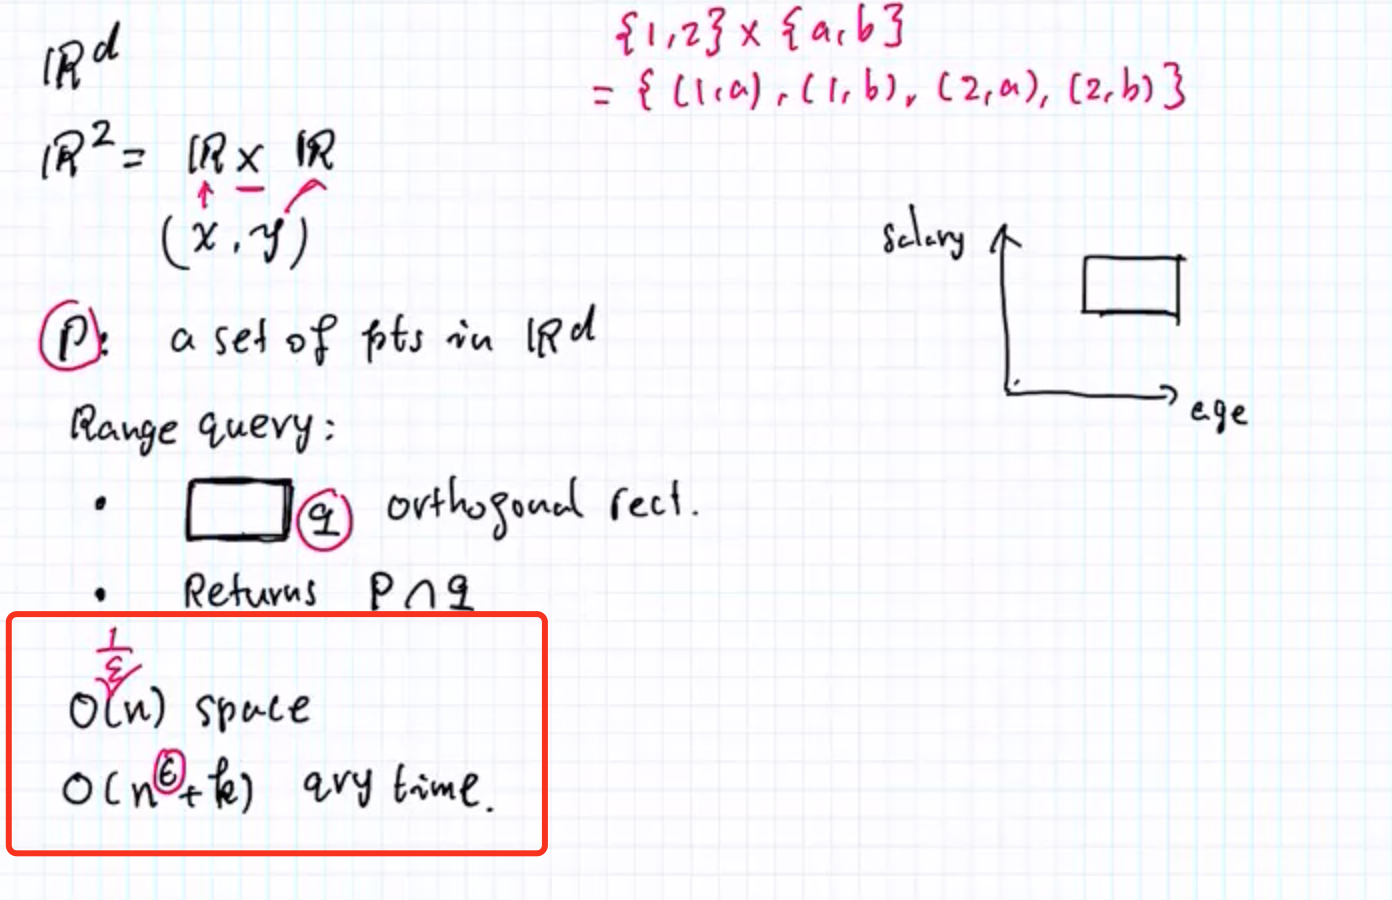 ℝᵈ
{1,2} × {a,b}
= {(1,a), (1,b), (2,a), (2,b)}
ℝ² = ℝ × ℝ
(x, y)
salary
P: a set of pts in ℝᵈ
age
Range query:
• q orthogonal rect.
• Returns P ∩ q
1/ε
O(n) space
O(n^ε + k) qry time.